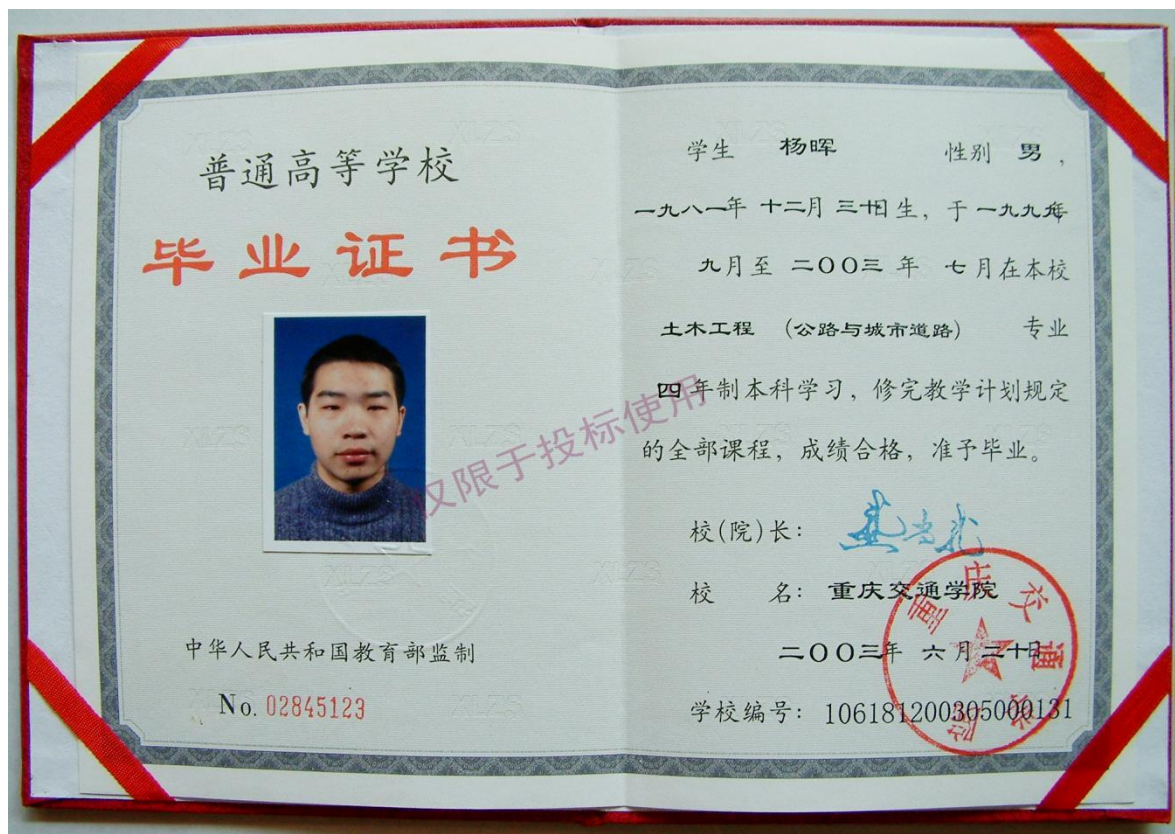 普通高等学校
毕业证书
中华人民共和国教育部监制
No. 02845123
学生 杨晖 性别 男，
一九八一年 十二月 三十日生，于一九九九年
九月至 二〇〇三 年 七月在本校
土木工程 （公路与城市道路） 专业
四 年制本科学习，修完教学计划规定
的全部课程，成绩合格，准予毕业。
校(院)长：
校 名：重庆交通学院
二〇〇三年 六月 二十日
学校编号：106181200305000131
重庆交通学院
仅限于投标使用
XLZS